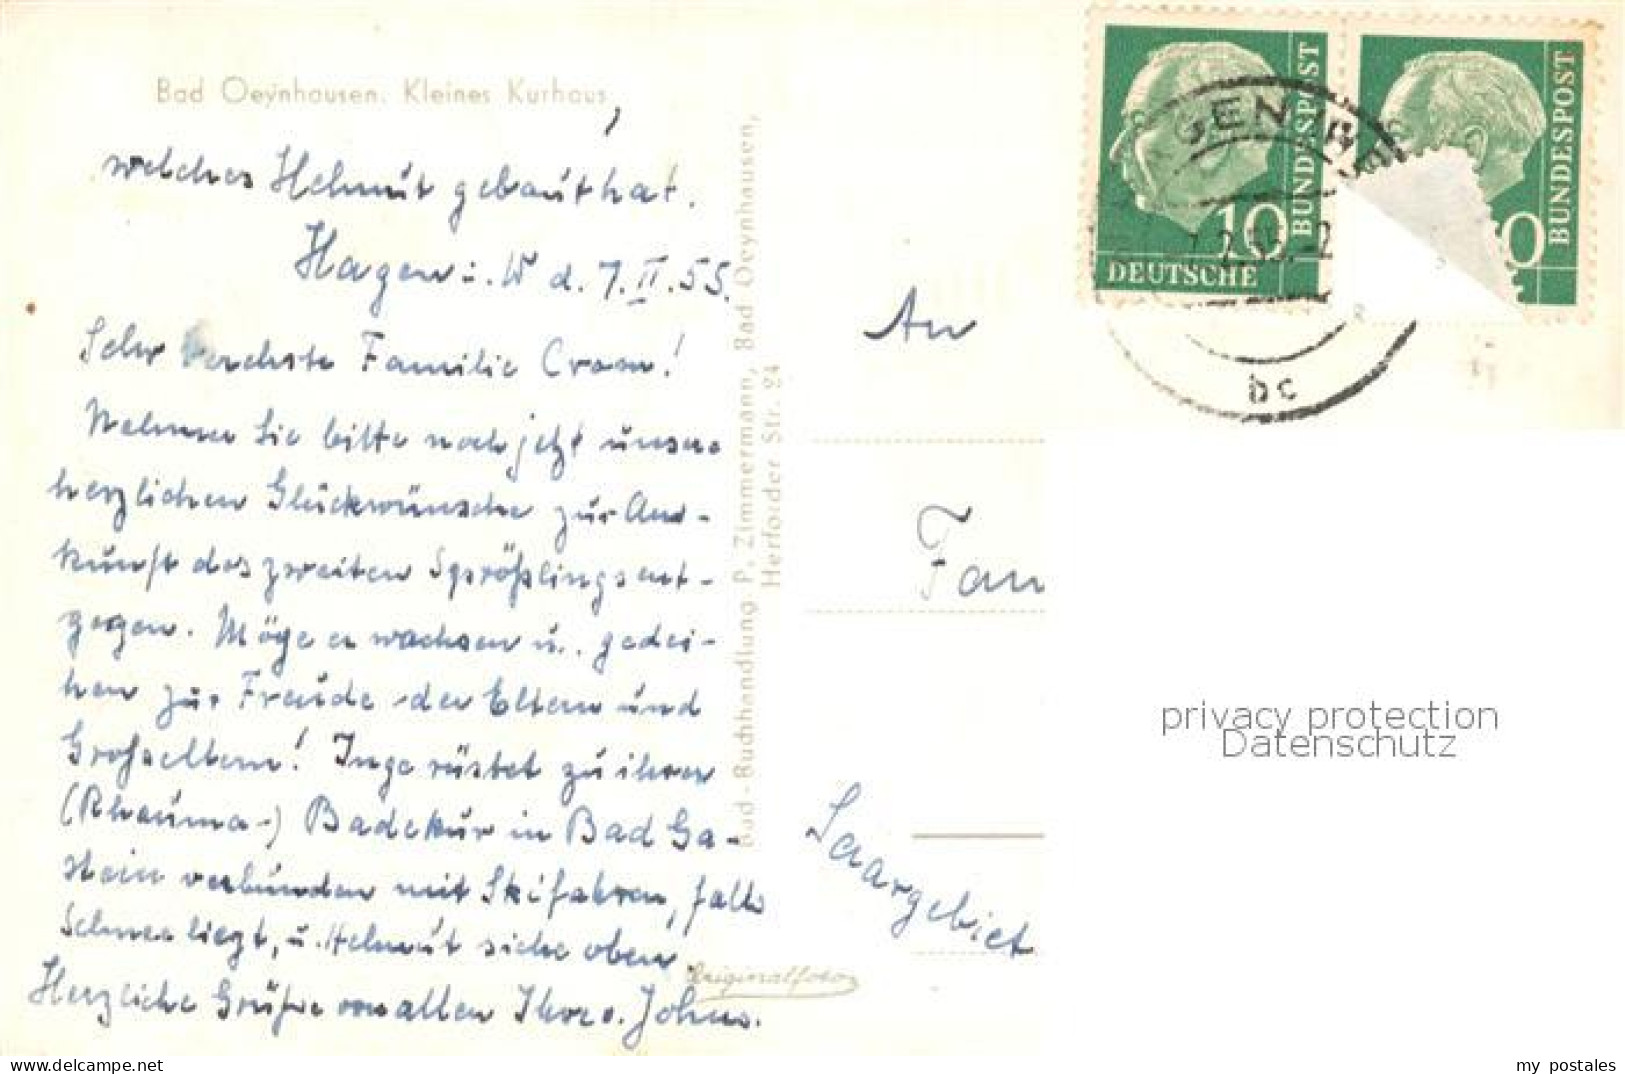 Bad Oeynhausen. Kleines Kurhaus,
welches Helmut gebaut hat.
Hagen i. W d. 7.II.55.
Sehr verehrte Familie Cram!
Nehmen Sie bitte noch jetzt unsere
herzlichen Glückwünsche zur An-
kunft des zweiten Sprößlings ent-
gegen. Möge er wachsen u. gedei-
hen zur Freude der Eltern und
Großeltern! Inge rüstet zu ihrer
(Rheuma-) Badekur in Bad Ga-
stein verbunden mit Skifahren, falls
Schnee liegt, u. Helmut siehe oben.
Herzliche Grüße von allen Ihre v. Johns.
Bad-Buchhandlung P. Zimmermann, Bad Oeynhausen,
Herforder Str. 24
Originalfoto
An
Fam
Saargebiet
10
DEUTSCHE
BUNDESPOST
0
BUNDESPOST
bc
privacy protection
Datenschutz
my postales